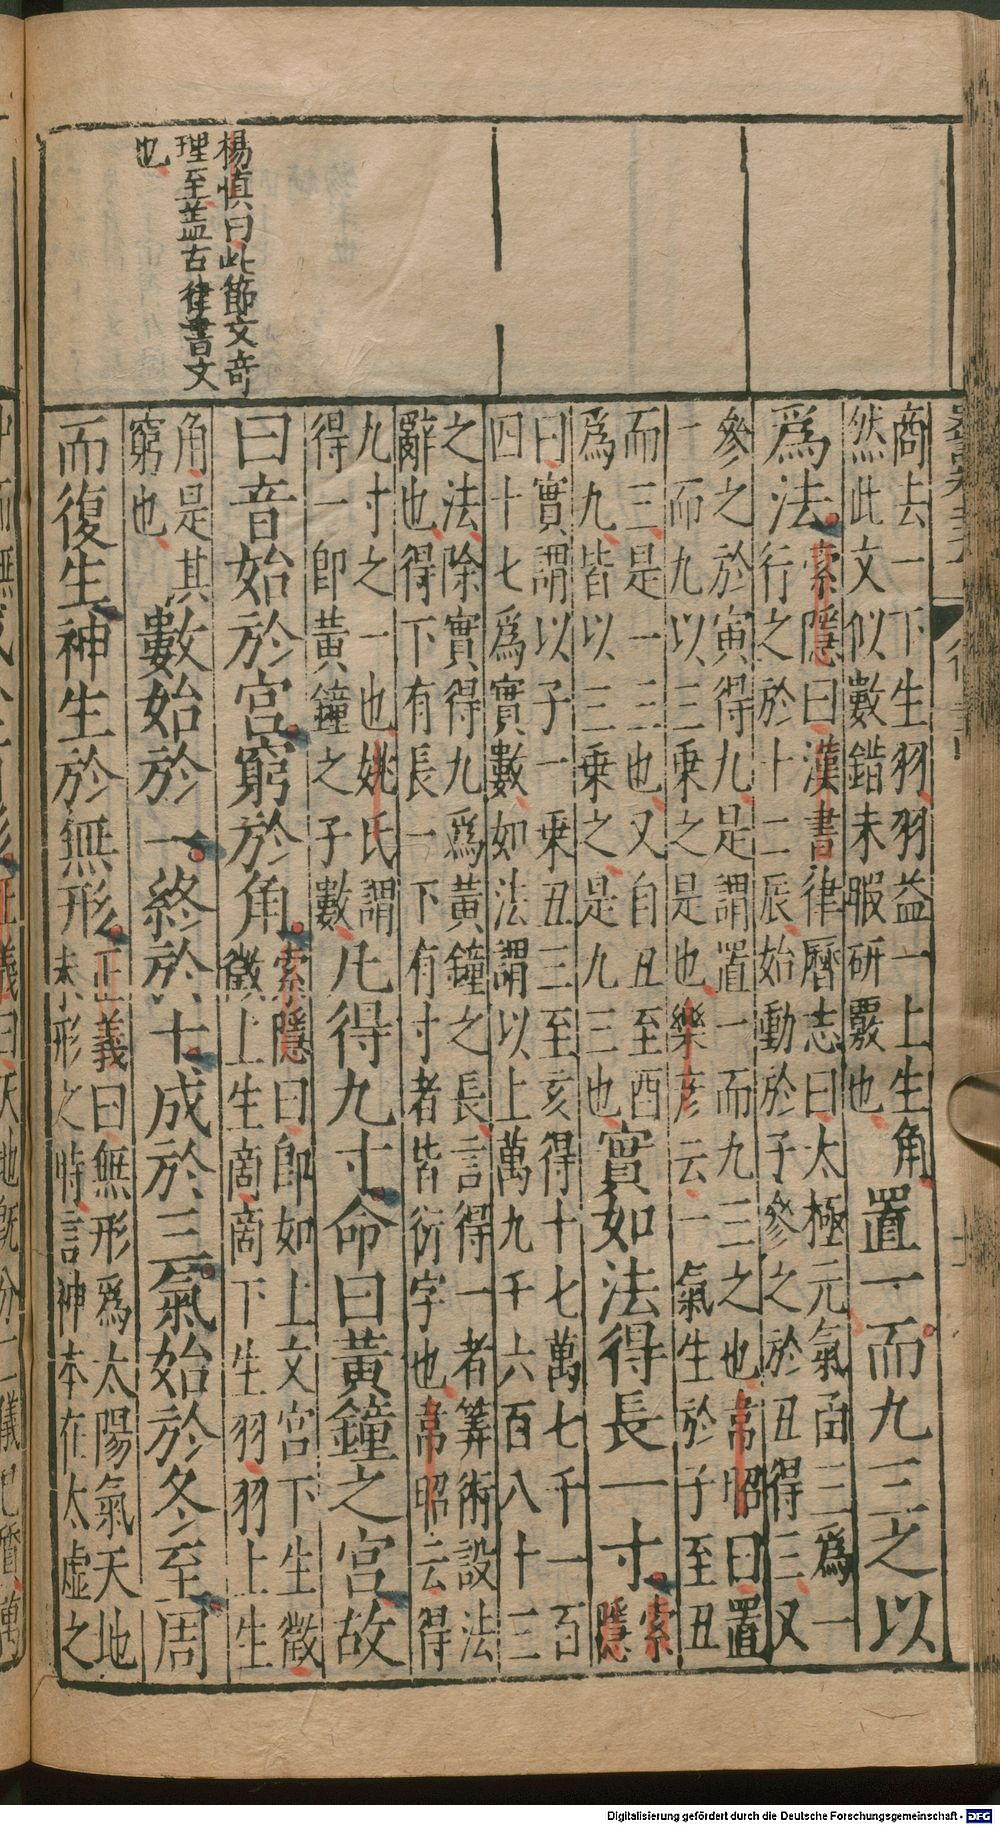 楊慎曰此節文奇
理至蓋古律書文
也
商去一下生羽羽益一上生角
然此文似數錯未暇研覈也
置一而九三之以
爲法
索隱曰漢書律曆志曰太極元氣函三爲一
行之於十二辰始動於子參之於丑得三又
參之於寅得九是謂置一而九三之也韋昭曰置
一而九以三乘之是也樂彥云一氣生於子至丑
而三是一三也又自丑至酉
爲九皆以三乘之是九三也
實如法得長一寸
索
隱
曰實謂以子一乘丑三至亥得十七萬七千一百
四十七爲實數如法謂以上萬九千六百八十三
之法除實得九爲黃鐘之長言得一者筭術設法
辭也得下有長一下有寸者皆衍字也韋昭云得
九寸之一也姚氏謂
得一卽黃鐘之子數
凡得九寸命曰黃鐘之宮故
曰音始於宮窮於角
索隱曰卽如上文宮下生徵
徵上生商商下生羽羽上生
角是其
窮也
數始於一終於十成於三氣始於冬至周
而復生神生於無形
正義曰無形爲太陽氣天地
未形之時言神本在太虛之
Digitalisierung gefördert durch die Deutsche Forschungsgemeinschaft - DFG